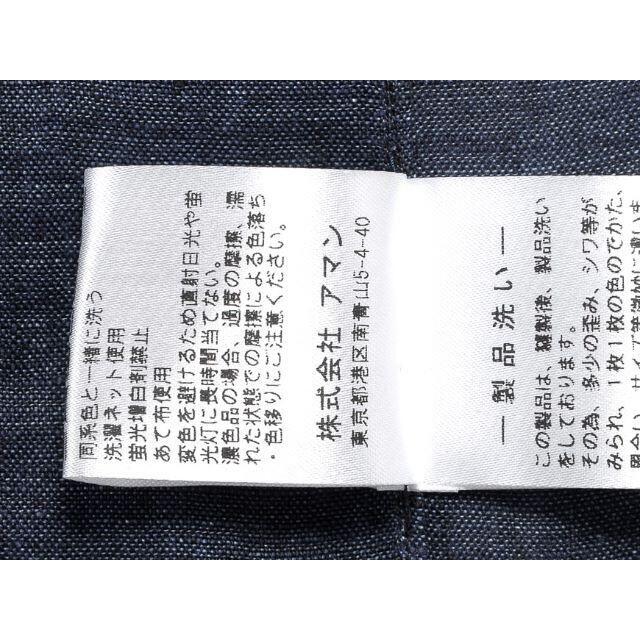 同系色と一緒に洗う
洗濯ネット使用
蛍光増白剤禁止
あて布使用
変色を避けるため直射日光や蛍
光灯に長時間当てない。
濃色品の場合、過度の摩擦、濡
れた状態での摩擦による色落ち
・色移りにご注意ください。
株式会社 アマン
東京都港区南青山5-4-40
― 製品洗い ―
この製品は、縫製後、製品洗い
をしております。
その為、多少の歪み、シワ等が
みられ、1枚1枚の色のでかた、